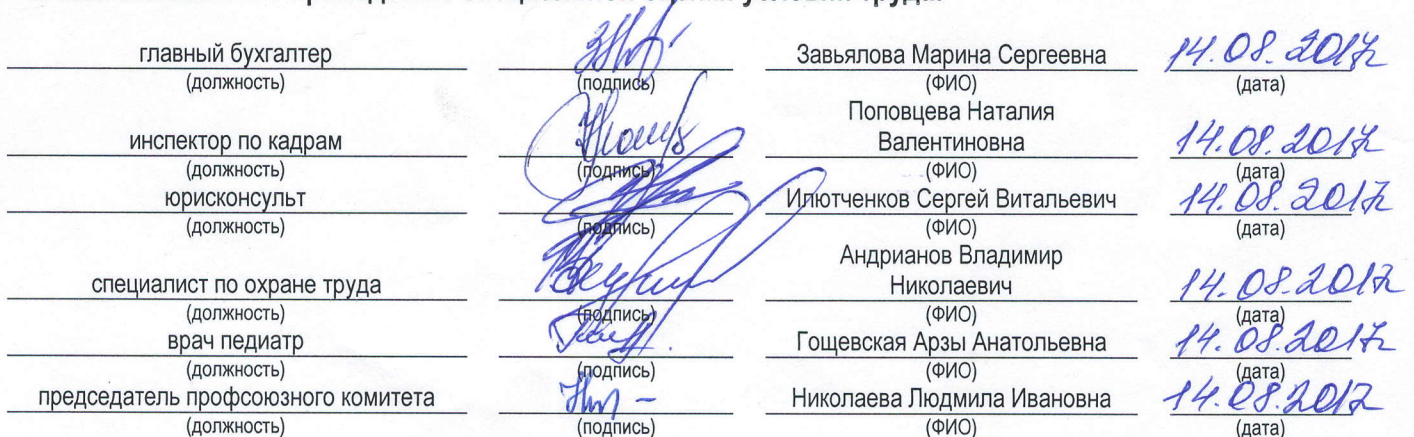 главный бухгалтер Завьялова Марина Сергеевна 14.08.2017г
(должность) (подпись) (ФИО) (дата)
Поповцева Наталия
инспектор по кадрам Валентиновна 14.08.2017г
(должность) (подпись) (ФИО) (дата)
юрисконсульт Илютченков Сергей Витальевич 14.08.2017г
(должность) (подпись) (ФИО) (дата)
Андрианов Владимир
специалист по охране труда Николаевич 14.08.2017г
(должность) (подпись) (ФИО) (дата)
врач педиатр Гощевская Арзы Анатольевна 14.08.2017г
(должность) (подпись) (ФИО) (дата)
председатель профсоюзного комитета Николаева Людмила Ивановна 14.08.2017
(должность) (подпись) (ФИО) (дата)